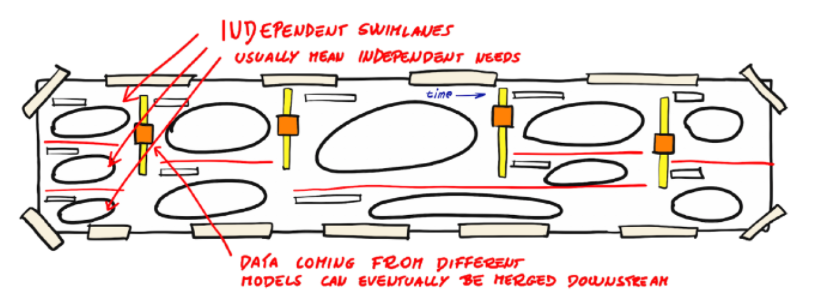 IUDEPENDENT SWIMLANES
USUALLY MEAN INDEPENDENT NEEDS
time
DATA COMING FROM DIFFERENT
MODELS CAN EVENTUALLY BE MERGED DOWNSTREAM